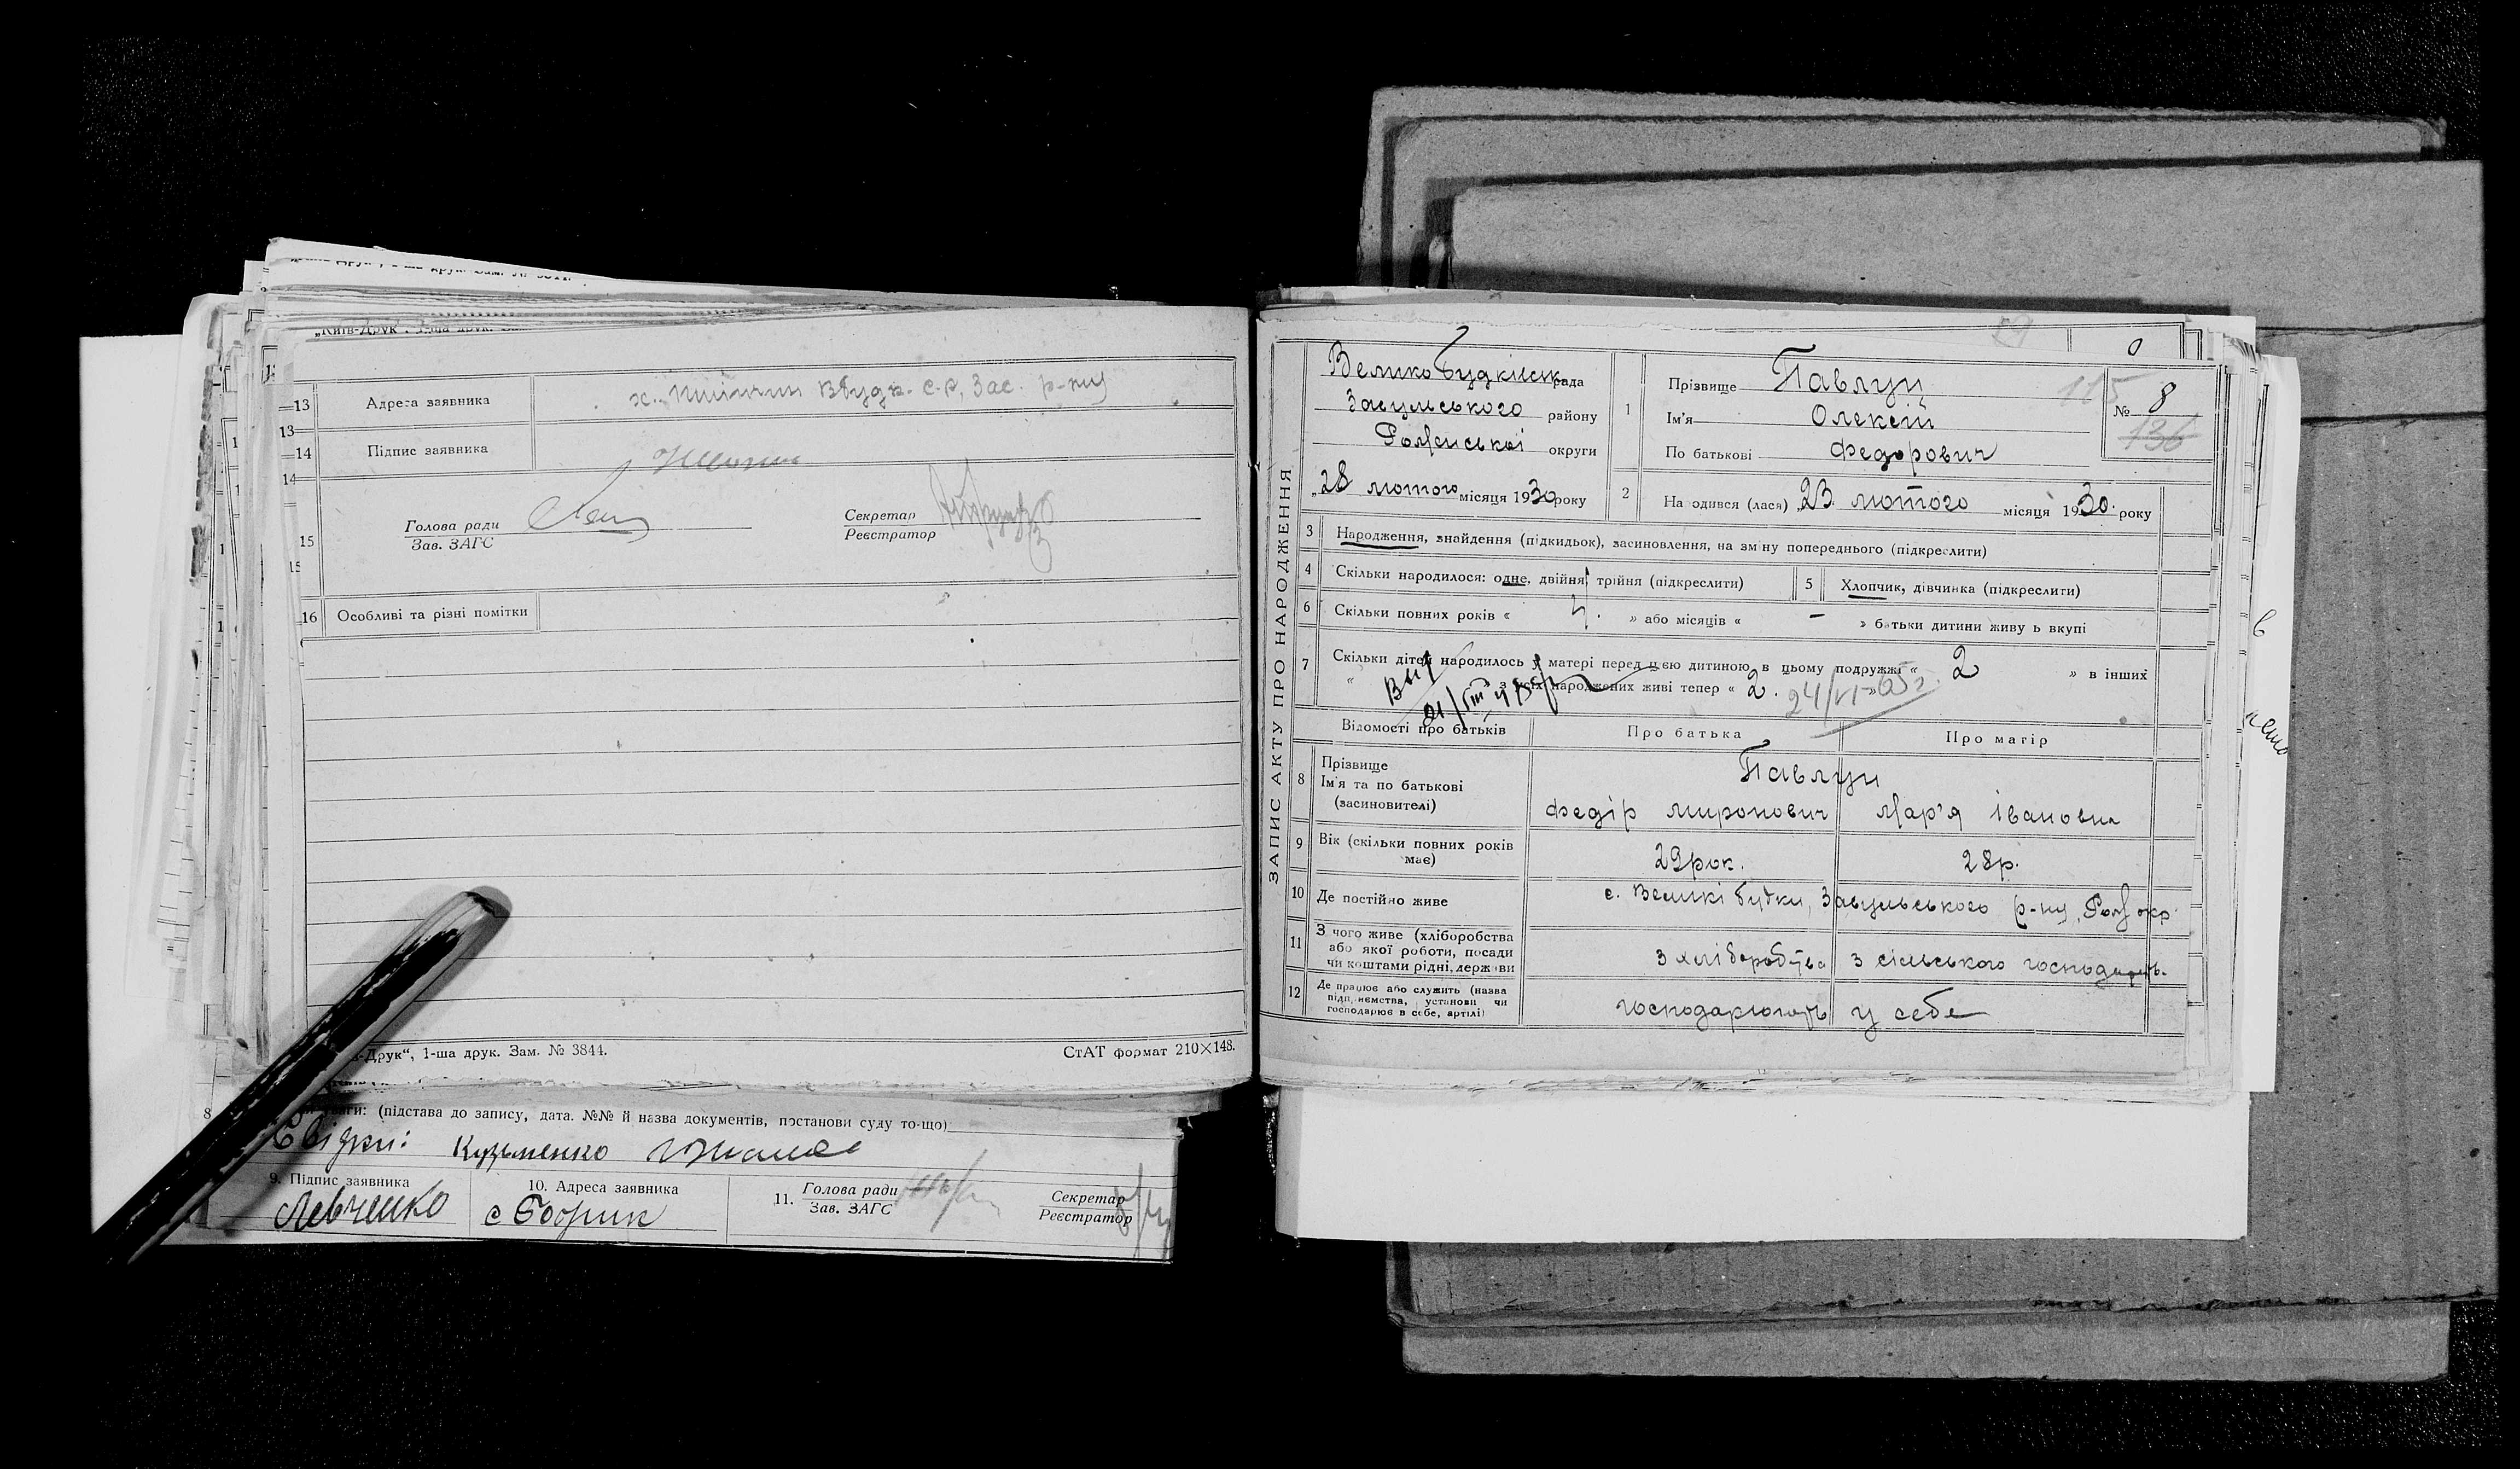 „Київ-Друк“, 1-ша друк.
13 Адреса заявника
с.р, Зас. р-ну
14 Підпис заявника
15 Голова ради
Зав. ЗАГС
Секретар
Реєстратор
16 Особливі та різні помітки
-Друк“, 1-ша друк. Зам. № 3844.
СтАТ формат 210×148.
8 (підстава до запису, дата. №№ й назва документів, постанови суду то-що)
Свідки: Кузьменко
9. Підпис заявника
Левченко
10. Адреса заявника
11. Голова ради
Зав. ЗАГС
Секретар
Реєстратор
ЗАПИС АКТУ ПРО НАРОДЖЕННЯ
Велико Будківськ. рада
Засульського району
Роменської округи
„28 лютого місяця 1930 року
1 Прізвище Павлун
Ім'я Олексій
По батькові Федорович
115
№ 8
136
2 Народився (лася) „23 лютого місяця 1930. року
3 Народження, знайдення (підкидьок), засиновлення, на зміну попереднього (підкреслити)
4 Скільки народилося: одне, двійня, трійня (підкреслити)
5 Хлопчик, дівчинка (підкреслити)
6 Скільки повних років « 4. » або місяців « – » батьки дитини живуть вкупі
7 Скільки дітей народилось у матері перед цею дитиною в цьому подружжі « 2 » в інших
« » з усіх народжених живі тепер « 2. »
24/VI-65 г.
Відомості про батьків
Про батька
Про матір
8 Прізвище
Ім'я та по батькові
(засиновителі)
Павлун
Федір Миронович
Мар'я Івановна
9 Вік (скільки повних років має)
29 рок.
28 р.
10 Де постійно живе
с. Великі Будки, Засульського р-ну, Ром. окр.
11 З чого живе (хліборобства
або якої роботи, посади
чи коштами рідні, держави
з хліборобства
з сільського господарст.
12 Де працює або служить (назва
підприємства, установи чи
господарює в себе, артілі)
господарюють у себе